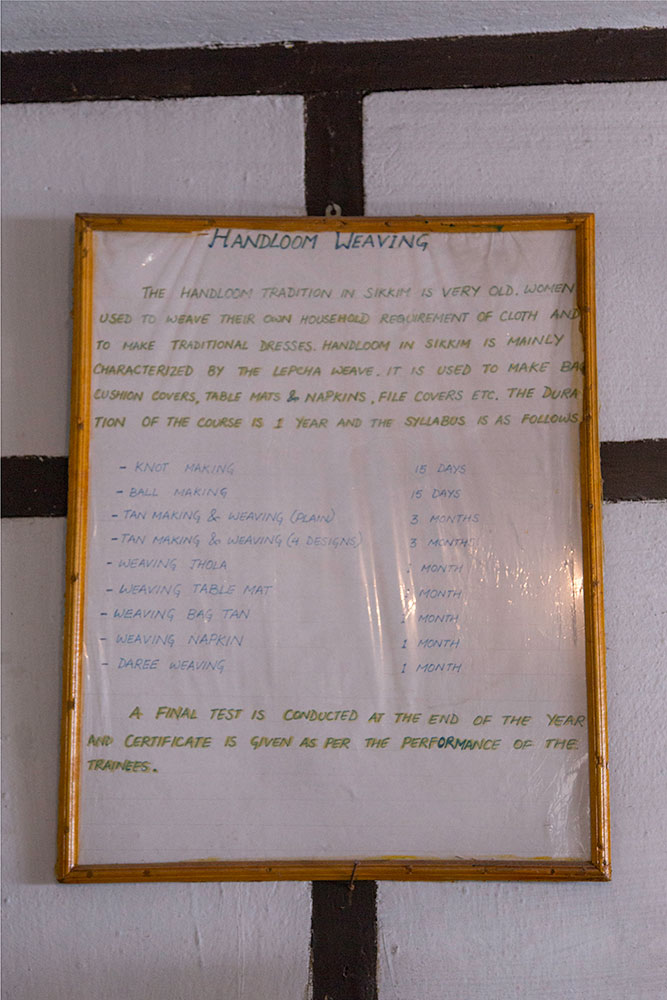 HANDLOOM WEAVING
THE HANDLOOM TRADITION IN SIKKIM IS VERY OLD. WOMEN
USED TO WEAVE THEIR OWN HOUSEHOLD REQUIREMENT OF CLOTH AND
TO MAKE TRADITIONAL DRESSES. HANDLOOM IN SIKKIM IS MAINLY
CHARACTERIZED BY THE LEPCHA WEAVE. IT IS USED TO MAKE BA
CUSHION COVERS, TABLE MATS & NAPKINS, FILE COVERS ETC. THE DURA
TION OF THE COURSE IS 1 YEAR AND THE SYLLABUS IS AS FOLLOWS
- KNOT MAKING 15 DAYS
- BALL MAKING 15 DAYS
- TAN MAKING & WEAVING (PLAIN) 3 MONTHS
- TAN MAKING & WEAVING (4 DESIGNS) 3 MONTHS
- WEAVING JHOLA 1 MONTH
- WEAVING TABLE MAT 1 MONTH
- WEAVING BAG TAN 1 MONTH
- WEAVING NAPKIN 1 MONTH
- DAREE WEAVING 1 MONTH
A FINAL TEST IS CONDUCTED AT THE END OF THE YEAR
AND CERTIFICATE IS GIVEN AS PER THE PERFORMANCE OF THE
TRAINEES.